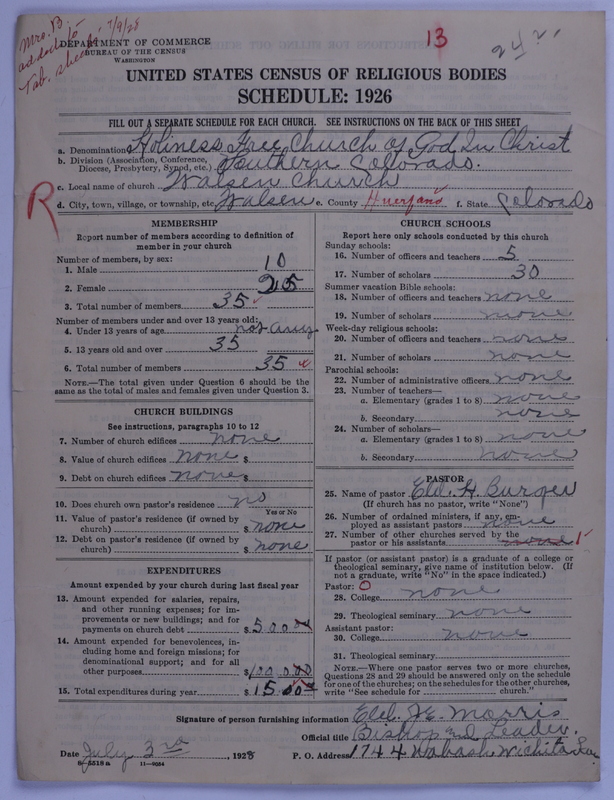 Mrs. B. 7/9/28
added to
Tab. sheets.
13
DEPARTMENT OF COMMERCE
BUREAU OF THE CENSUS
WASHINGTON
UNITED STATES CENSUS OF RELIGIOUS BODIES
SCHEDULE: 1926
FILL OUT A SEPARATE SCHEDULE FOR EACH CHURCH. SEE INSTRUCTIONS ON THE BACK OF THIS SHEET
a. Denomination Holiness Free Church of God In Christ
b. Division (Association, Conference, Diocese, Presbytery, Synod, etc.) Southern Colorado.
c. Local name of church Walsen Church
R
d. City, town, village, or township, etc. Walsen e. County Huerfano f. State Colorado
MEMBERSHIP
Report number of members according to definition of
member in your church
Number of members, by sex:
1. Male 10
2. Female 25
3. Total number of members 35
Number of members under and over 13 years old:
4. Under 13 years of age not any
5. 13 years old and over 35
6. Total number of members 35
NOTE.—The total given under Question 6 should be the
same as the total of males and females given under Question 3.
CHURCH BUILDINGS
See instructions, paragraphs 10 to 12
7. Number of church edifices none
8. Value of church edifices none $
9. Debt on church edifices none $
10. Does church own pastor's residence no
Yes or No
11. Value of pastor's residence (if owned by
church) $ none
12. Debt on pastor's residence (if owned by
church) $ none
EXPENDITURES
Amount expended by your church during last fiscal year
13. Amount expended for salaries, repairs,
and other running expenses; for im-
provements or new buildings; and for
payments on church debt $
14. Amount expended for benevolences, in-
cluding home and foreign missions; for
denominational support; and for all
other purposes $
15. Total expenditures during year $
CHURCH SCHOOLS
Report here only schools conducted by this church
Sunday schools:
16. Number of officers and teachers 5
17. Number of scholars 30
Summer vacation Bible schools:
18. Number of officers and teachers none
19. Number of scholars none
Week-day religious schools:
20. Number of officers and teachers none
21. Number of scholars none
Parochial schools:
22. Number of administrative officers none
23. Number of teachers—
a. Elementary (grades 1 to 8) none
b. Secondary none
24. Number of scholars—
a. Elementary (grades 1 to 8) none
b. Secondary none
PASTOR
25. Name of pastor Eld. H. Burger
(If church has no pastor, write "None")
26. Number of ordained ministers, if any, em-
ployed as assistant pastors none
27. Number of other churches served by the
pastor or his assistants none 1
If pastor (or assistant pastor) is a graduate of a college or
theological seminary, give name of institution below. (If
not a graduate, write "No" in the space indicated.)
Pastor: O
28. College none
29. Theological seminary none
Assistant pastor:
30. College none
31. Theological seminary
NOTE.—Where one pastor serves two or more churches,
Questions 28 and 29 should be answered only on the schedule
for one of the churches; on the schedules for the other churches,
write "See schedule for church."
Signature of person furnishing information Eld. J. E. Morris
Official title Bishop and Leader.
Date July 3rd, 1928 P. O. Address 1744 Wabash Wichita Kan
8-5518a 11-9054